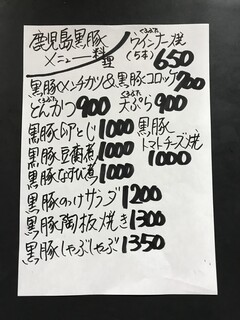 鹿児島黒豚
メニュー料理
くろぶた
ウインナー焼
(5本) 650
黒豚メンチカツ&黒豚コロッケ 700
くろぶた
とんかつ 900
くろぶた
天ぷら 900
黒豚 とじ 1000
黒豚
トマトチーズ焼
1000
黒豚豆腐煮 1000
黒豚なすび煮 1000
黒豚のっけサラダ 1200
黒豚陶板焼き 1300
黒豚しゃぶしゃぶ 1350